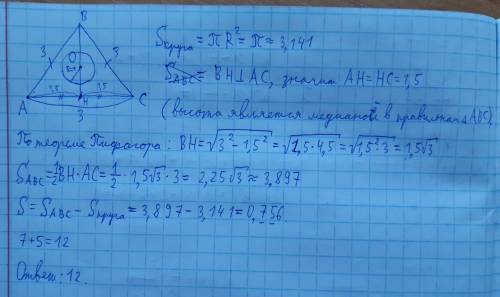 B
3
3
O
R=1
1,5
1,5
A
H
C
3
Sкруга = πR² = π ≈ 3,141
S_ABC = BH⊥AC, значит AH=HC=1,5
(высота является медианой в правильном Δ ABC).
По теореме Пифагора: BH = √(3² − 1,5²) = √(1,5·4,5) = √(1,5²·3) = 1,5√3
S_ABC = 1/2 BH·AC = 1/2 · 1,5√3 · 3 = 2,25√3 ≈ 3,897
S = S_ABC − Sкруга = 3,897 − 3,141 = 0,756.
7+5=12
Ответ: 12.